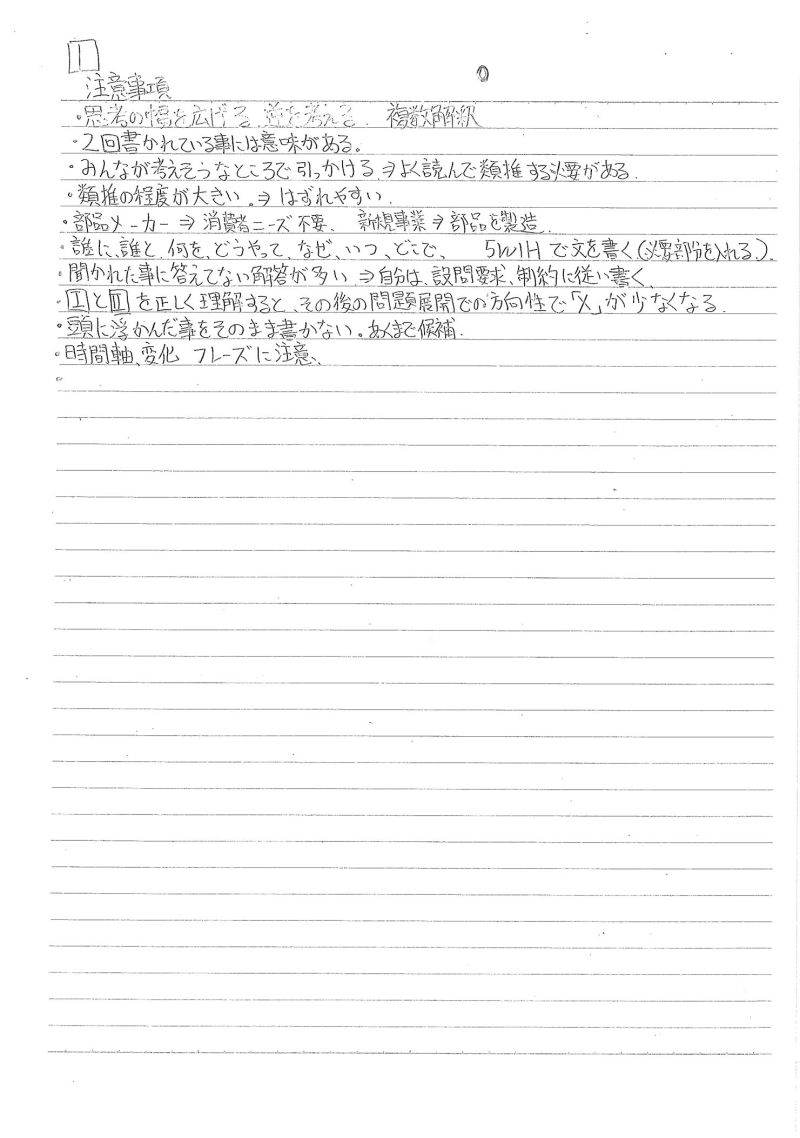 1
注意事項
・思考の幅を広げる 逆を考える 複数解釈
・2回書かれている事には意味がある。
・みんなが考えそうなところで引っかける⇒よく読んで類推する必要がある.
・類推の程度が大きい。⇒はずれやすい.
・部品メーカー⇒消費者ニーズ不要. 新規事業⇒部品を製造.
・誰に、誰と、何を、どうやって、なぜ、いつ、どこで、 5W1Hで文を書く(必要部分を入れる。)。
・聞かれた事に答えてない解答が多い⇒自分は、設問要求、制約に従い書く、
・ⅠとⅡを正しく理解すると、その後の問題展開での方向性で「×」が少なくなる.
・頭に浮かんだ事をそのまま書かない。あくまで候補.
・時間軸、変化 フレーズに注意、